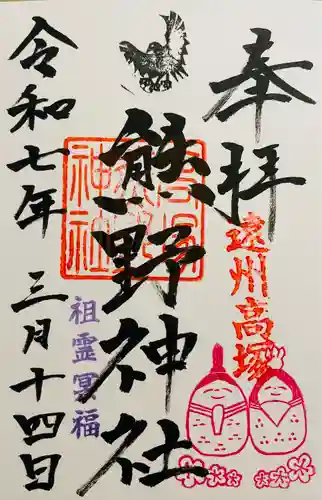 奉拝
遠州高塚
熊野神社
高塚熊野神社
祖霊冥福
令和七年三月十四日